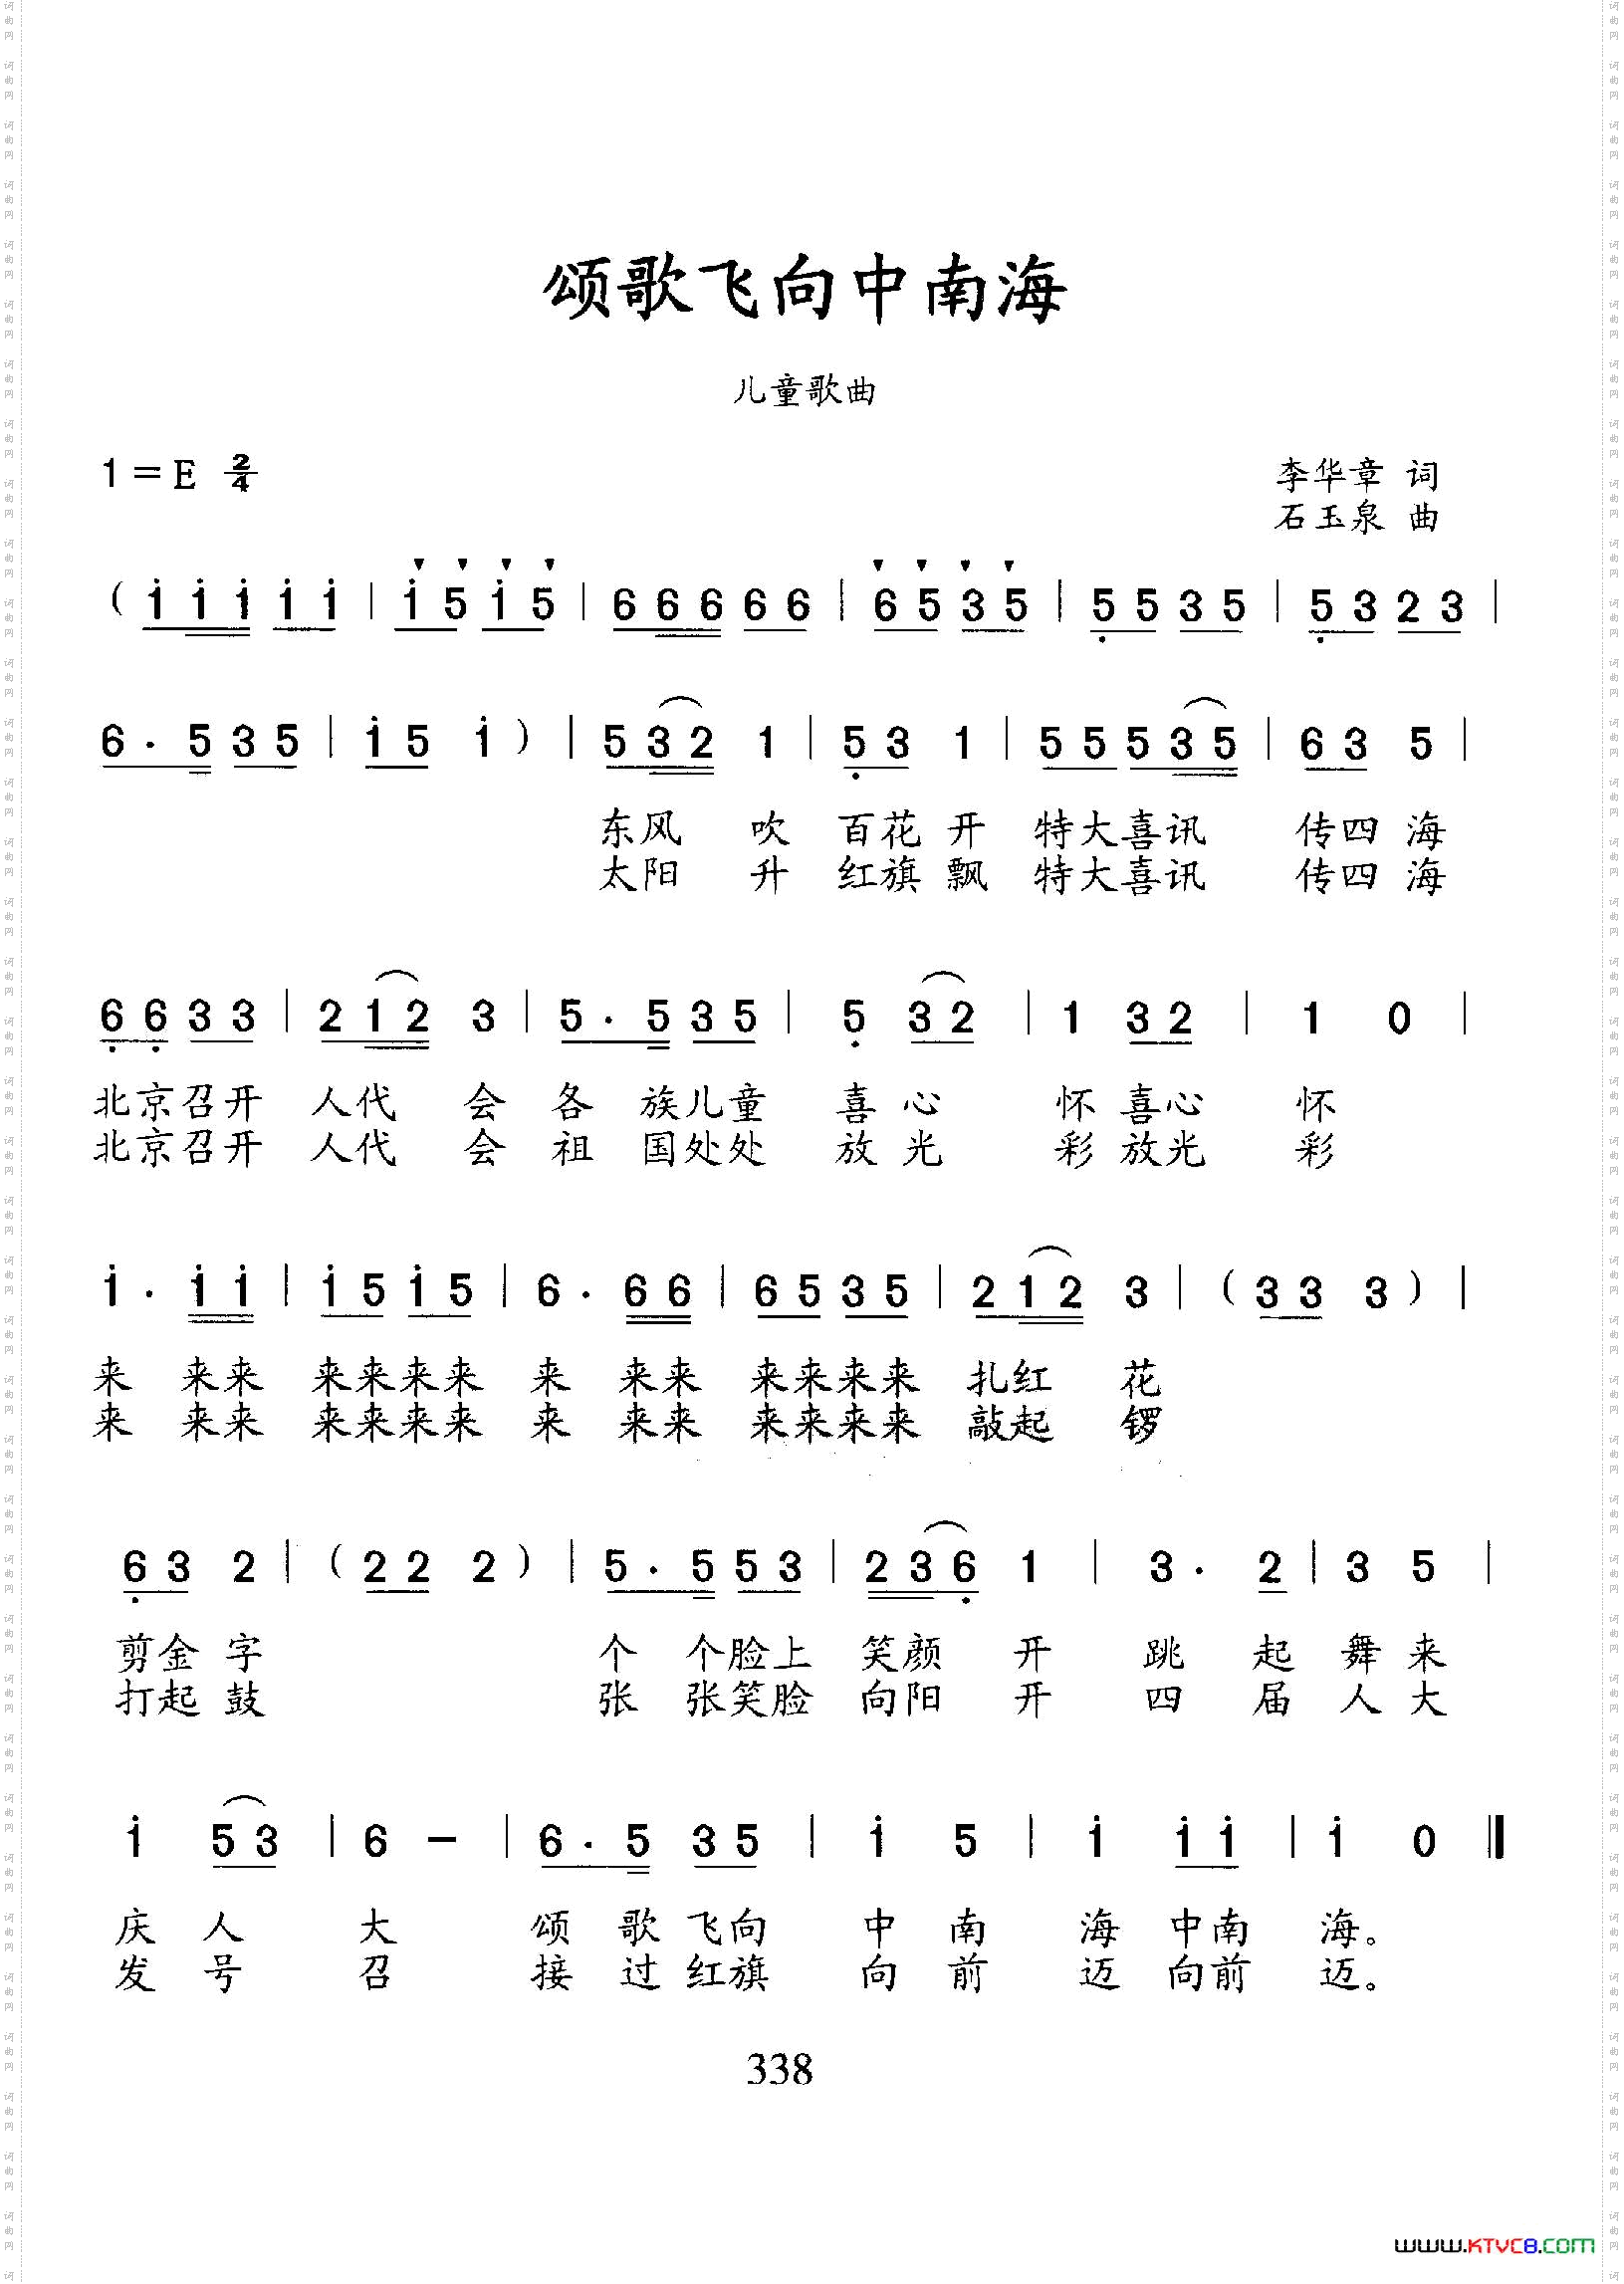 颂歌飞向中南海
儿童歌曲
1=E 2/4
李华章 词
石玉泉 曲
( i i i i i | i 5 i 5 | 6 6 6 6 6 | 6 5 3 5 | 5 5 3 5 | 5 3 2 3 |
6 · 5 3 5 | i 5 i ) | 5 3 2 1 | 5 3 1 | 5 5 5 3 5 | 6 3 5 |
东风 吹 百花 开 特大喜讯 传四 海
太阳 升 红旗 飘 特大喜讯 传四 海
6 6 3 3 | 2 1 2 3 | 5 · 5 3 5 | 5 3 2 | 1 3 2 | 1 0 |
北京召开 人代 会 各 族儿童 喜 心 怀 喜心 怀
北京召开 人代 会 祖 国处处 放 光 彩 放光 彩
i · i i | i 5 i 5 | 6 · 6 6 | 6 5 3 5 | 2 1 2 3 | ( 3 3 3 ) |
来 来来 来来来来 来 来来 来来来来 扎红 花
来 来来 来来来来 来 来来 来来来来 敲起 锣
6 3 2 | ( 2 2 2 ) | 5 · 5 5 3 | 2 3 6 1 | 3 · 2 | 3 5 |
剪金 字 个 个脸上 笑颜 开 跳 起 舞 来
打起 鼓 张 张笑脸 向阳 开 四 届 人 大
i 5 3 | 6 – | 6 · 5 3 5 | i 5 | i i i | i 0 ‖
庆 人 大 颂 歌 飞向 中 南 海 中南 海。
发 号 召 接 过 红旗 向 前 迈 向前 迈。
338
www.KTVC8.com
词曲网